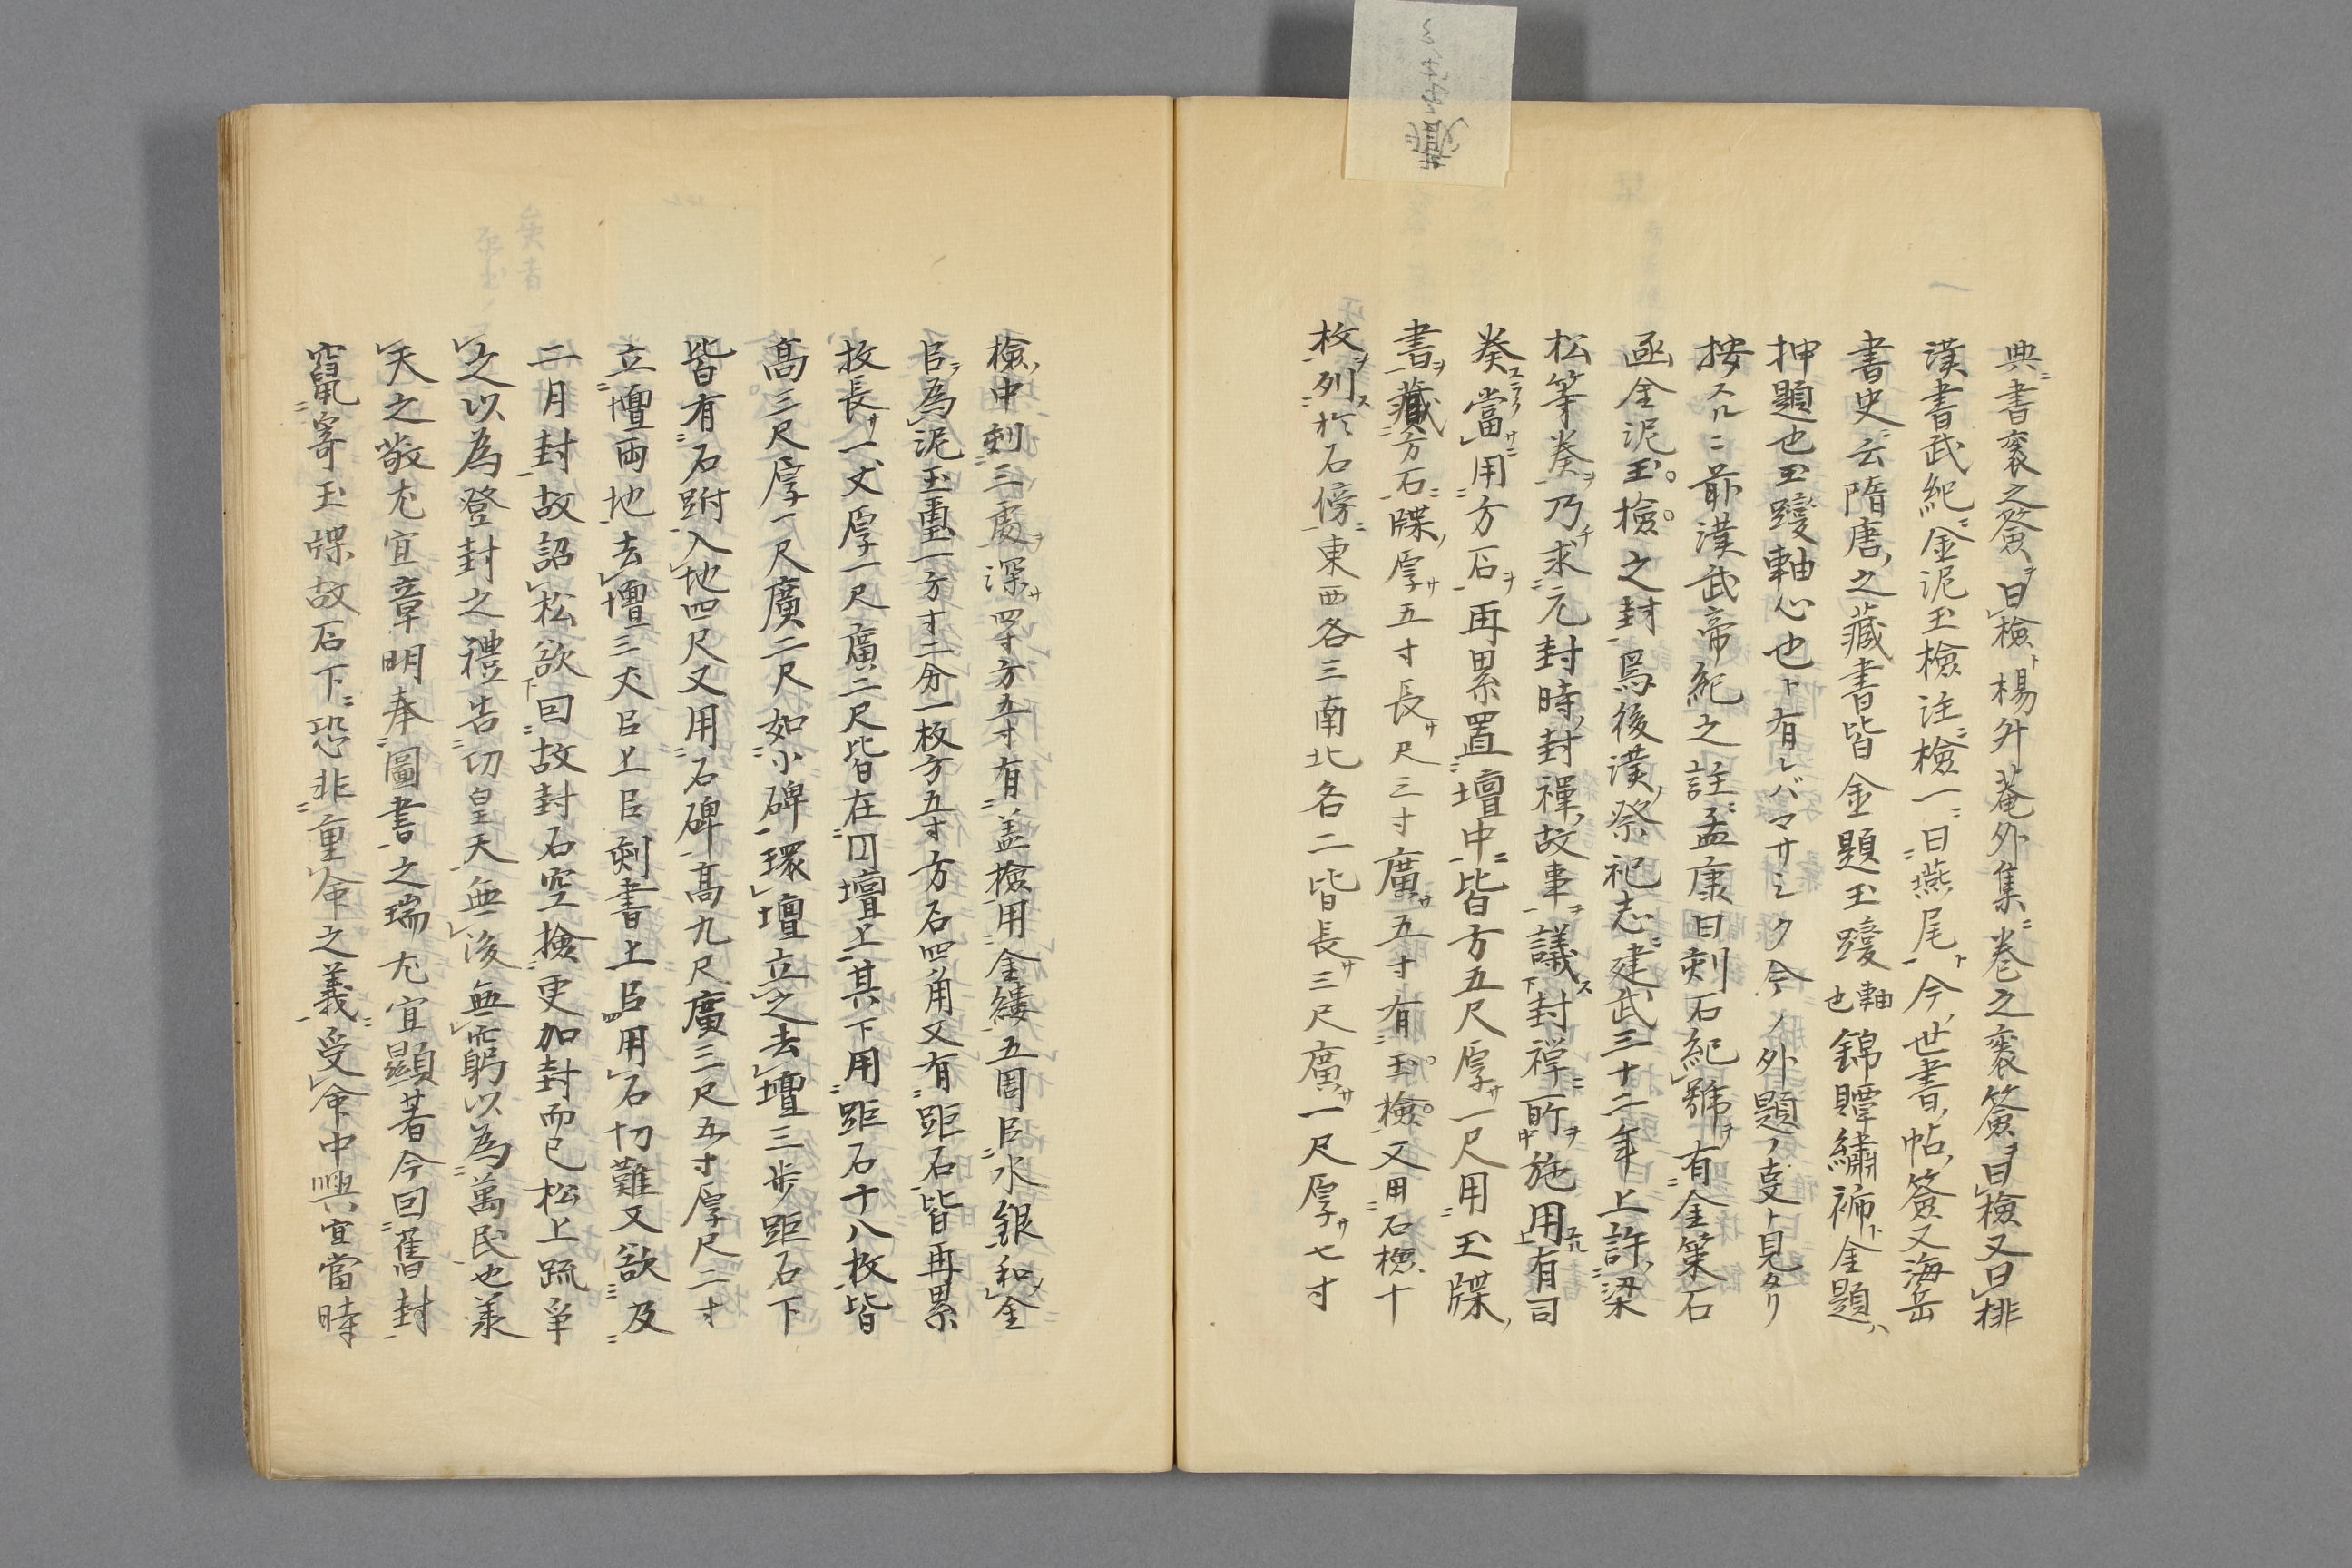 典書袠之簽ヲ曰檢ト楊升菴外集ニ卷之袠簽ヲ曰檢又曰排
漢書武紀ニ金泥玉檢注ニ檢一ニ曰燕尾ト今ノ世書ノ帖ノ簽又海岳
書史ニ云隋唐ノ之藏書皆金題玉躞軸也錦贉繡褫ト金題ハ
押題也玉躞軸心也ト有レバマサシク今ノ外題ノ叓ト見タリ
按スルニ前漢武帝紀之註ニ孟康曰刻石紀號ヲ有金策石
函金泥玉檢之封焉後漢ノ祭祀志ニ建武三十二年上許ノ梁
松等奏ヲ乃チ求元封時ノ封禪ノ故事ヲ議ス封禅ニ所ヲ施用スル有司
奏スラク當サニ用方石ヲ再累置壇中ニ皆方五尺厚サ一尺用玉牒ノ
書ヲ藏方石ニ牒ノ厚サ五寸長サ尺三寸廣サ五寸有玉檢又用石檢十
枚ヲ列ス於石傍ニ東西各三南北各二皆長サ三尺廣サ一尺厚サ七寸
檢ノ中刻三處ヲ深サ四寸方五寸有蓋檢用金縷五周㠯水銀和ノ金
㠯ヲ為泥玉璽一方寸二分一枚方五寸方石四角又有距石皆再累
枚長サ一丈厚一尺廣二尺皆在囬壇上其下用距石十八枚皆
髙三尺厚一尺廣二尺如小碑環壇立之去壇三步距石下
皆有石跗入地四尺又用石碑髙九尺廣三尺五寸厚尺二寸
立壇両地去壇三丈㠯上㠯刻書上㠯用石切難又欲及
二月封故詔松欲囙故封石空撿更加封而已松上疏爭
之以為登封之禮告切皇天無後無窮以為萬民也義
天之敬尤宜章明奉圖書之瑞尤宜顯著今囙舊封
竄寄玉牒故石下ニ恐非重命之義受命中興宜當時